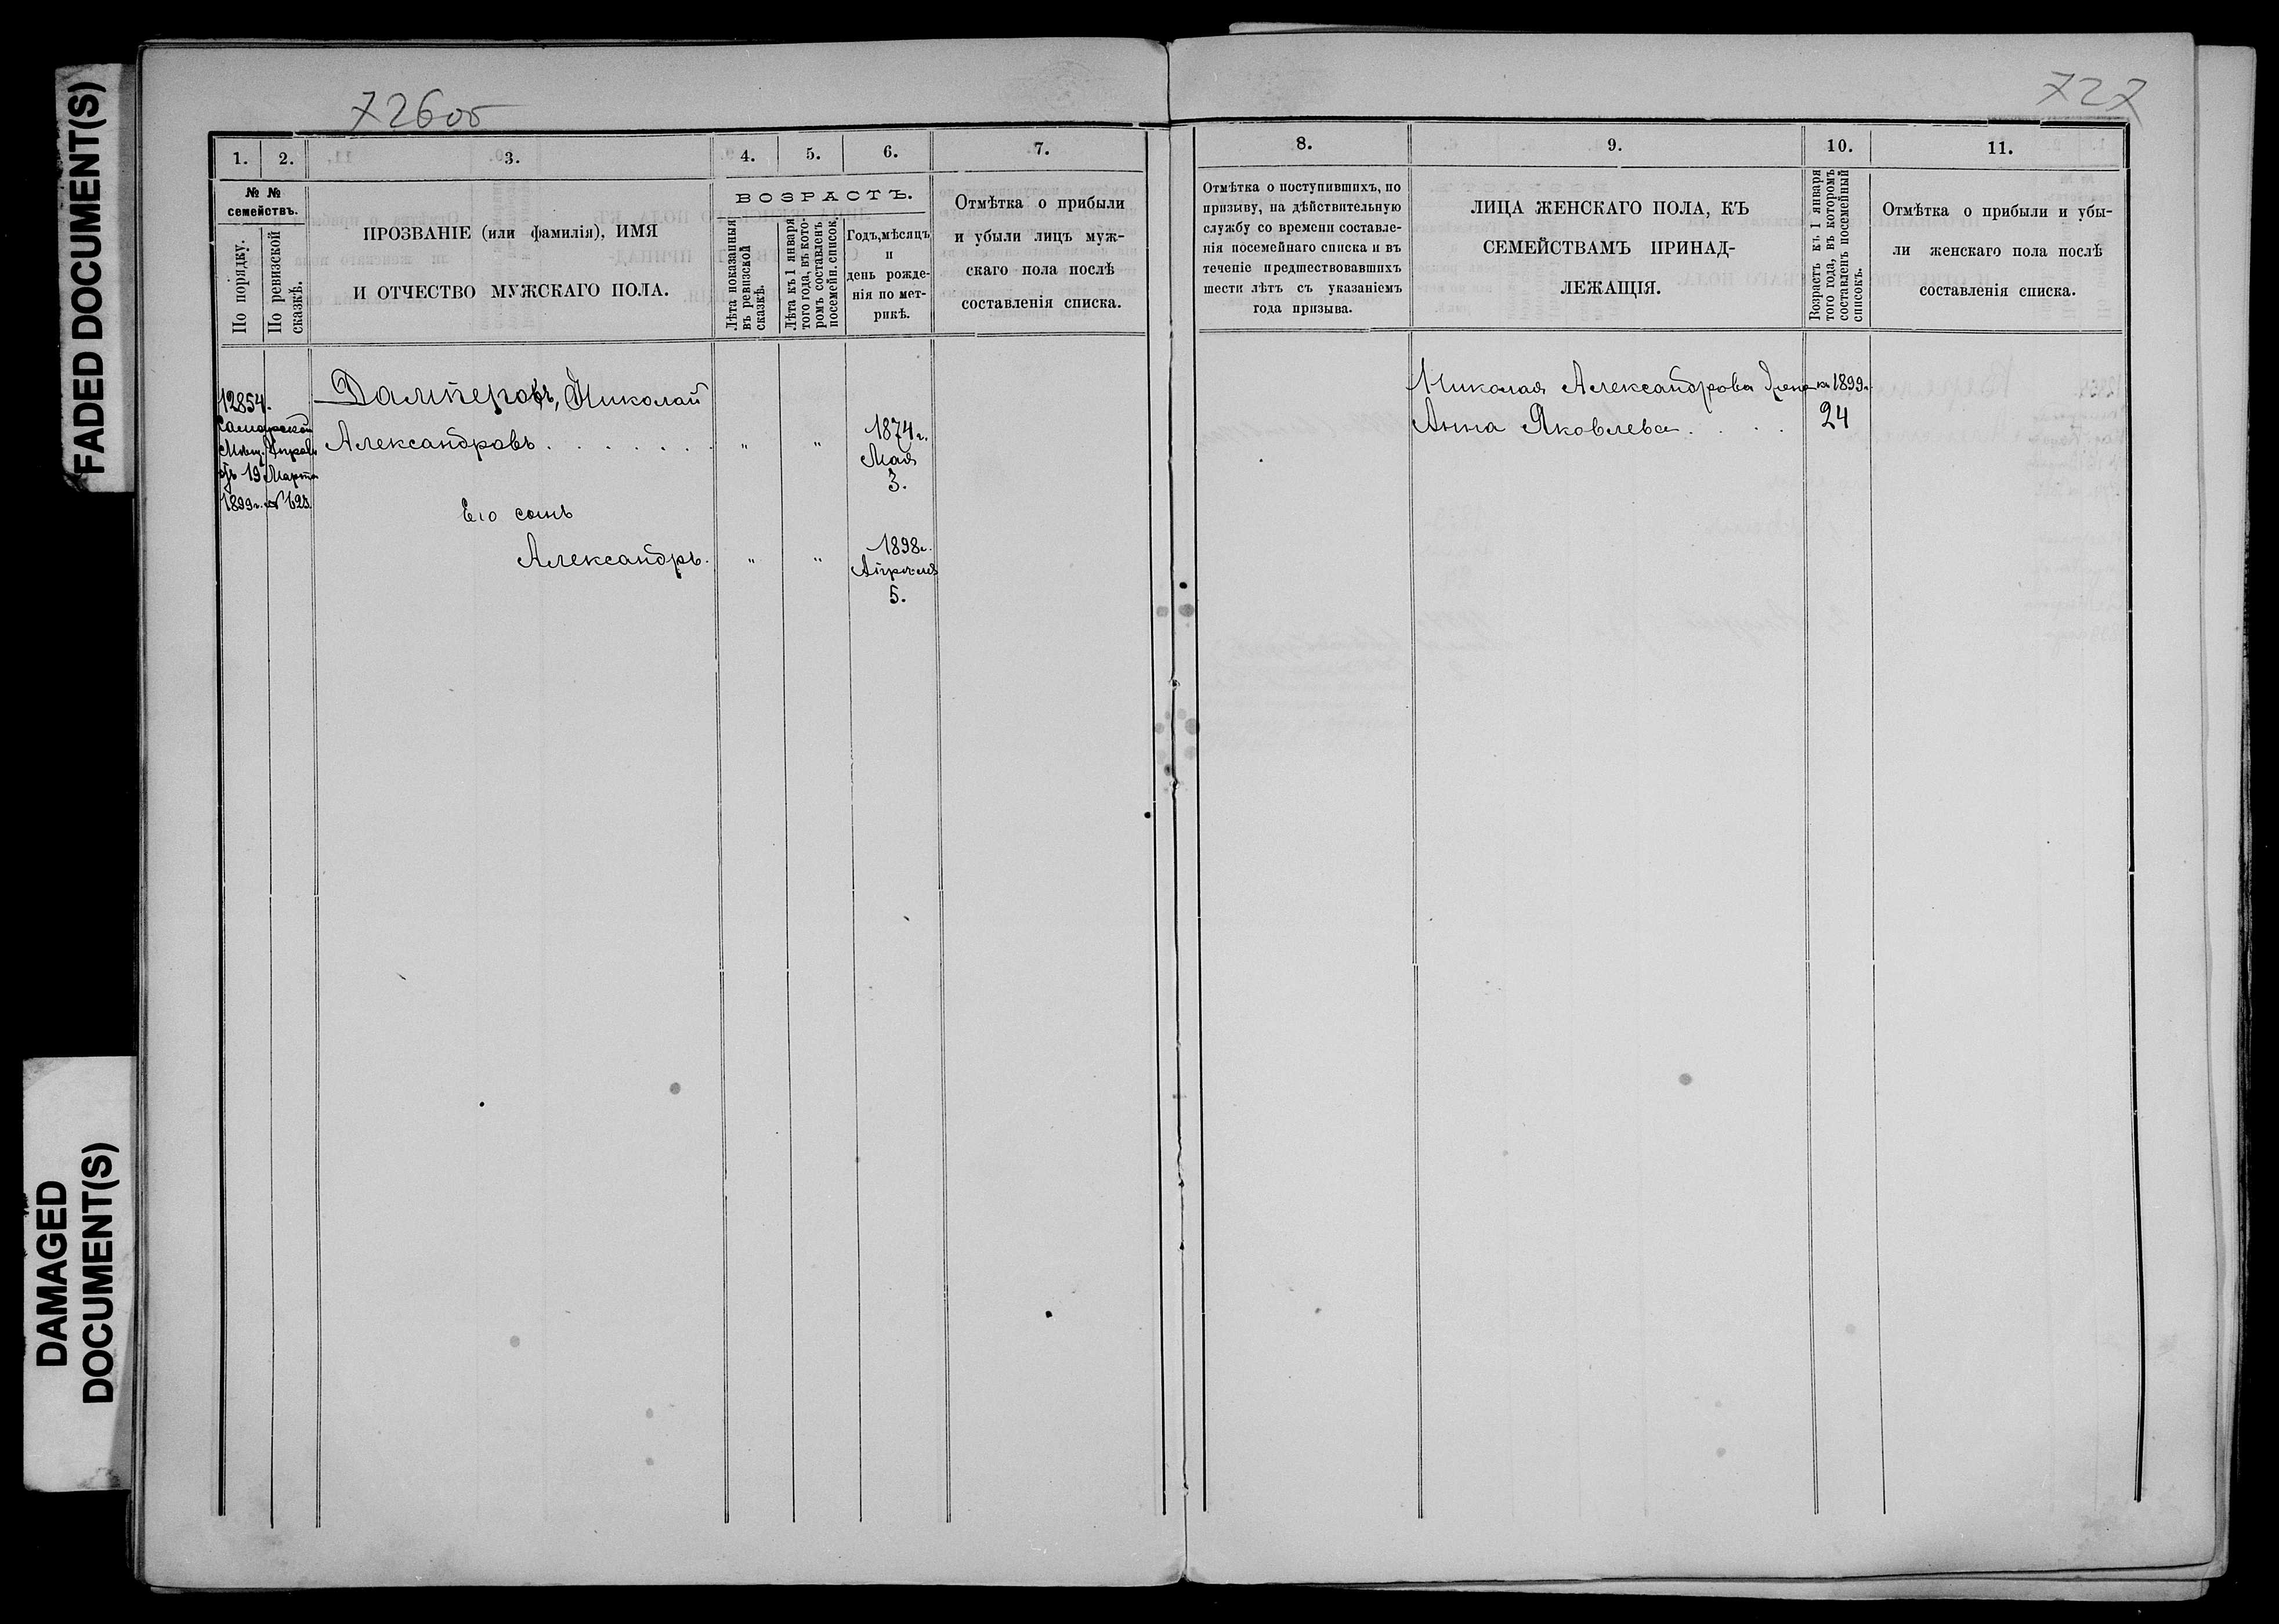 FADED DOCUMENT(S)
DAMAGED
DOCUMENT(S)
726об
1.
2.
3.
4.
5.
6.
7.
№ №
семействъ.
По порядку.
По ревизской
сказкѣ.
ПРОЗВАНІЕ (или фамилія), ИМЯ
И ОТЧЕСТВО МУЖСКАГО ПОЛА.
ВОЗРАСТЪ.
Лѣта показанныя
въ ревизской
сказкѣ.
Лѣта къ 1 января
того года, въ кото-
ромъ составленъ
посемейн. список.
Годъ, мѣсяцъ
и
день рожде-
нія по мет-
рикѣ.
Отмѣтка о прибыли
и убыли лицъ муж-
скаго пола послѣ
составленія списка.
12854.
Самарской
Мѣщ. Управы
отъ 19 Марта
1899г. №
Николай
Александровъ . . . . . . . " "
1874г.
Мая
3.
Его сынъ
Александръ. " "
1898г.
Апрѣля
5.
727
8.
9.
10.
11.
Отмѣтка о поступившихъ, по
призыву, на дѣйствительную
службу со времени составле-
нія посемейнаго списка и въ
теченіе предшествовавшихъ
шести лѣтъ съ указаніемъ
года призыва.
ЛИЦА ЖЕНСКАГО ПОЛА, КЪ
СЕМЕЙСТВАМЪ ПРИНАД-
ЛЕЖАЩІЯ.
Возрастъ къ 1 января
того года, въ которомъ
составленъ посемейный
списокъ.
Отмѣтка о прибыли и убы-
ли женскаго пола послѣ
составленія списка.
Николая Александрова жена къ 1899г.
Анна Яковлева . . . . 24